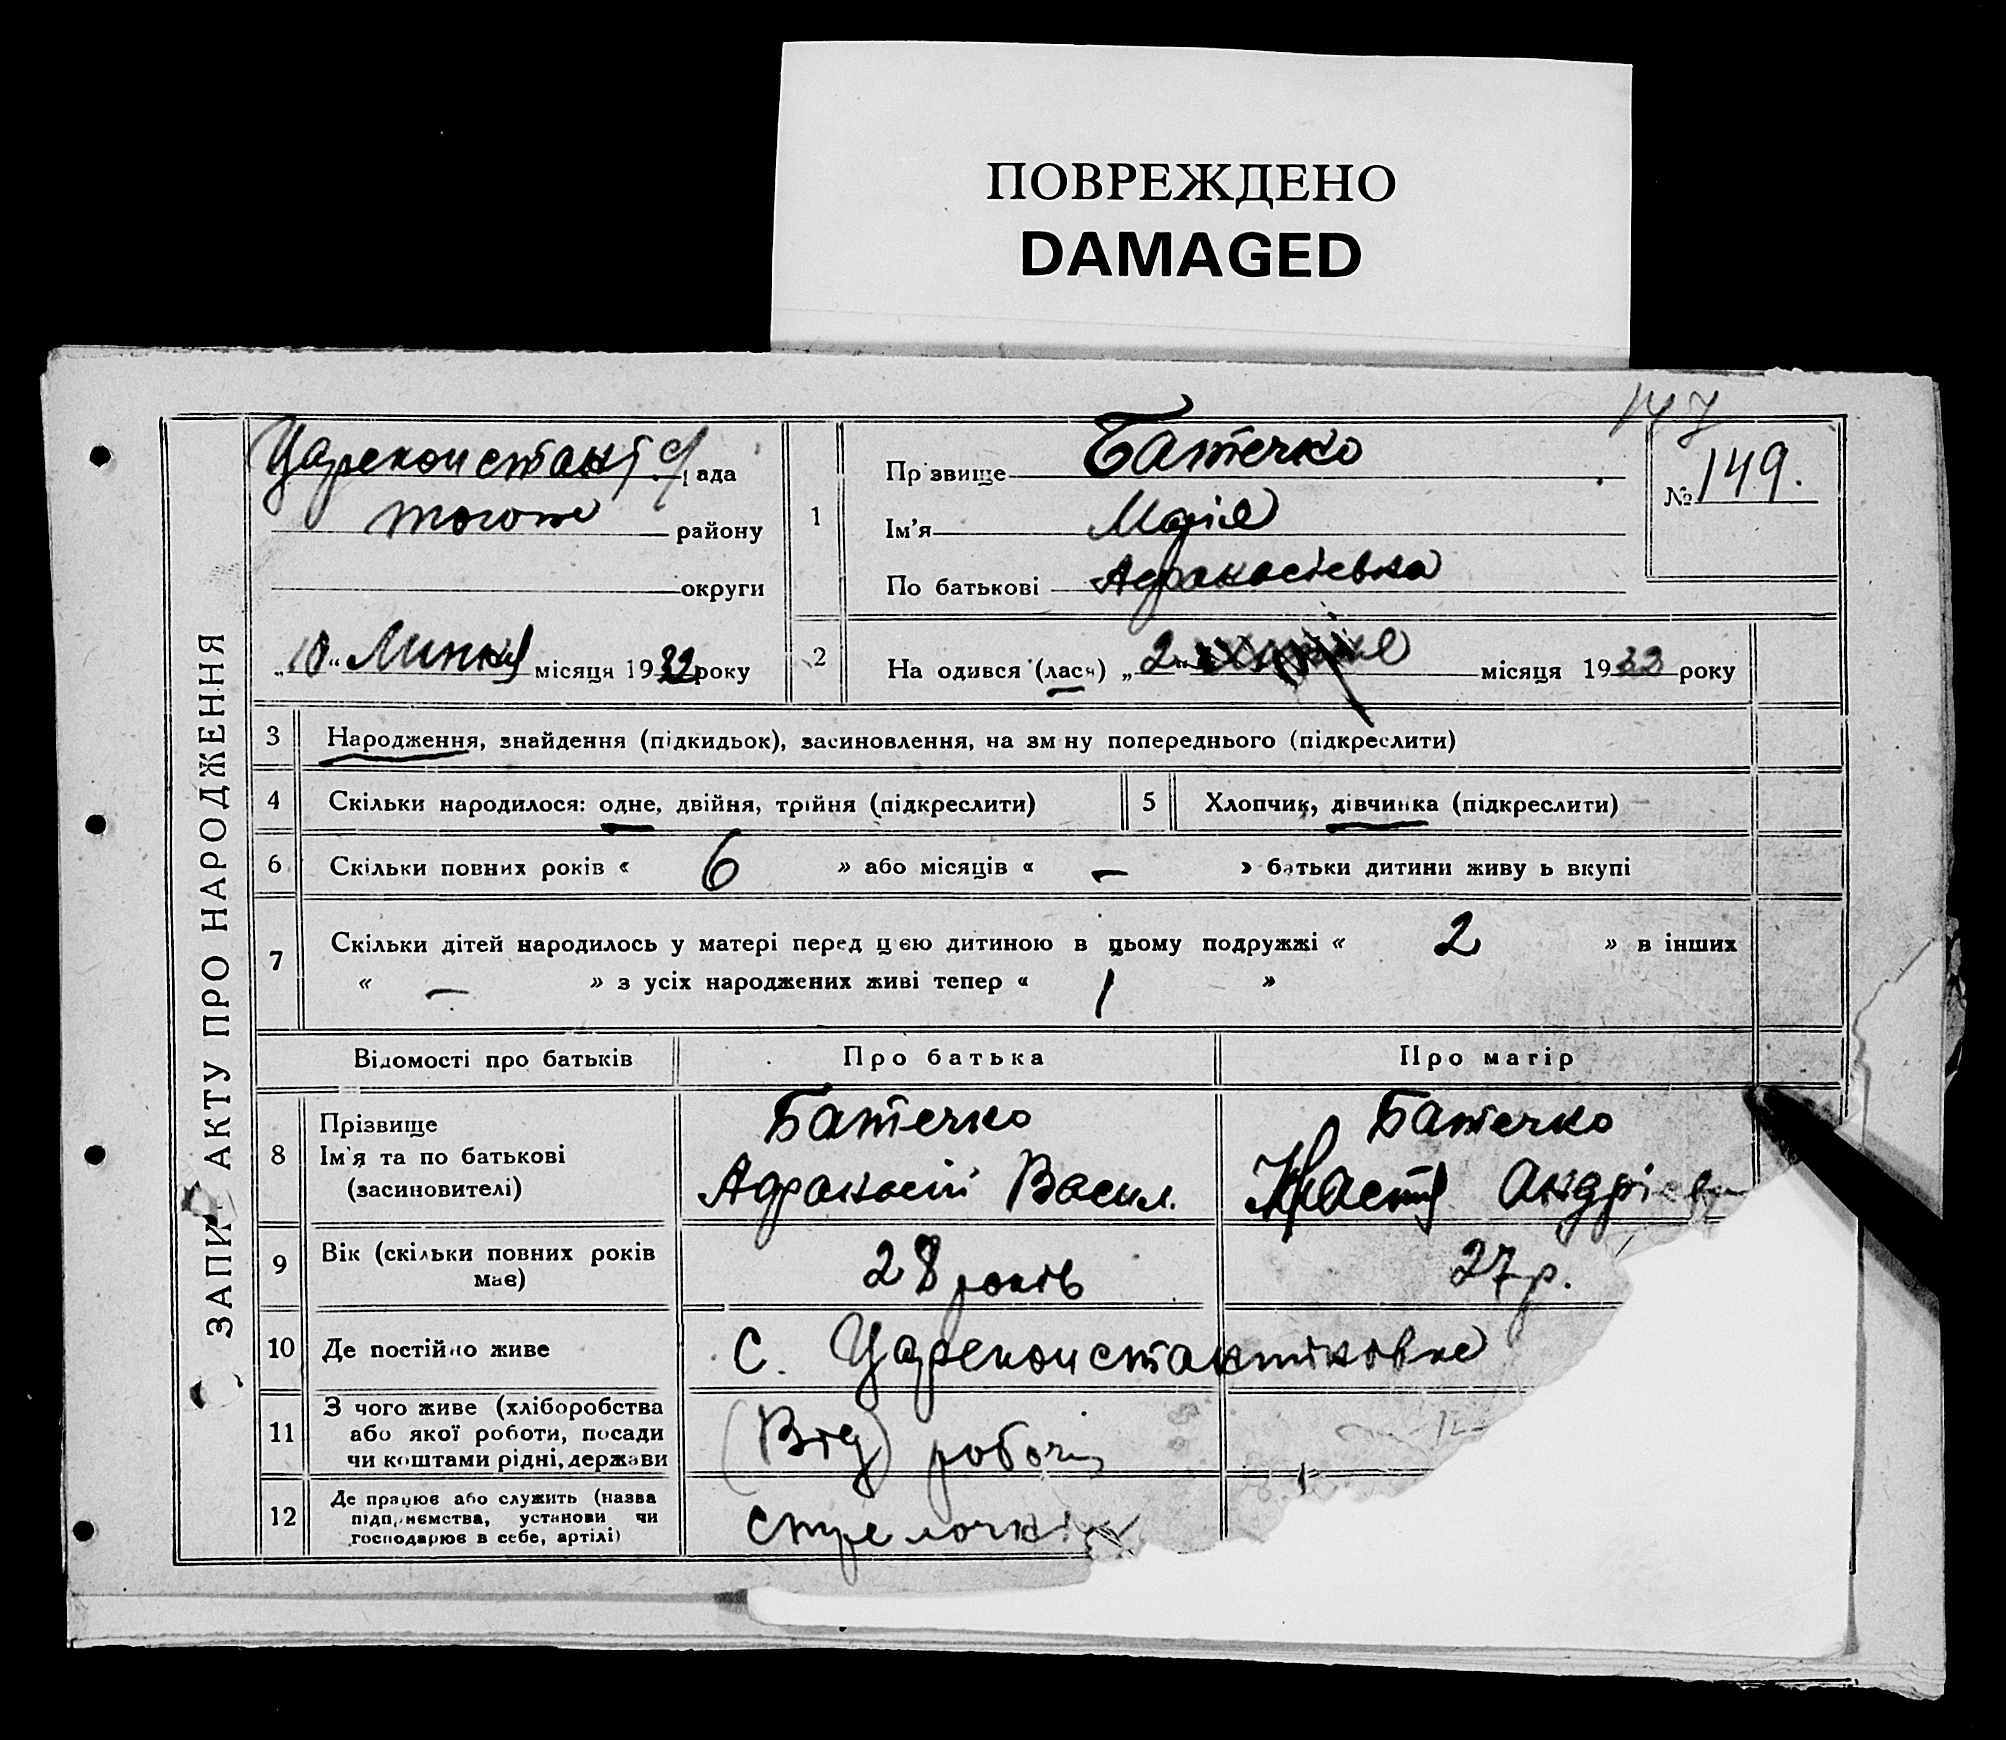 ПОВРЕЖДЕНО
DAMAGED
147
ЗАПИ АКТУ ПРО НАРОДЖЕННЯ
Цареконстант. с/рада
тогоже району
округи
„10“ Липня місяця 1932 року
1
Прзвище Батечко
Ім'я Марія
По батькові Афанасієвна
№ 149.
2
На одився (лася) „2“ місяця 1932 року
3 Народження, знайдення (підкидьок), засиновлення, на зм ну попереднього (підкреслити)
4 Скільки народилося: одне, двійня, трійня (підкреслити) 5 Хлопчик, дівчинка (підкреслити)
6 Скільки повних років « 6 » або місяців « — » батьки дитини живу ь вкупі
7 Скільки дітей народилось у матері перед цією дитиною в цьому подружжі « 2 » в інших
« — » з усіх народжених живі тепер « 1 »
Відомості про батьків Про батька Про матір
8 Прізвище
Ім'я та по батькові
(засиновителі)
Батечко
Афанасій Васил.
Батечко
Настя Андрієв
9 Вік (скільки повних років
має)
28 років
27 р.
10 Де постійно живе с. Цареконстантиновке
11 З чого живе (хліборобства
або якої роботи, посади
чи коштами рідні, держави
(Від) робочи
12 Де працює або служить (назва
підп,иємства, установи чи
господарює в себе, артілі)